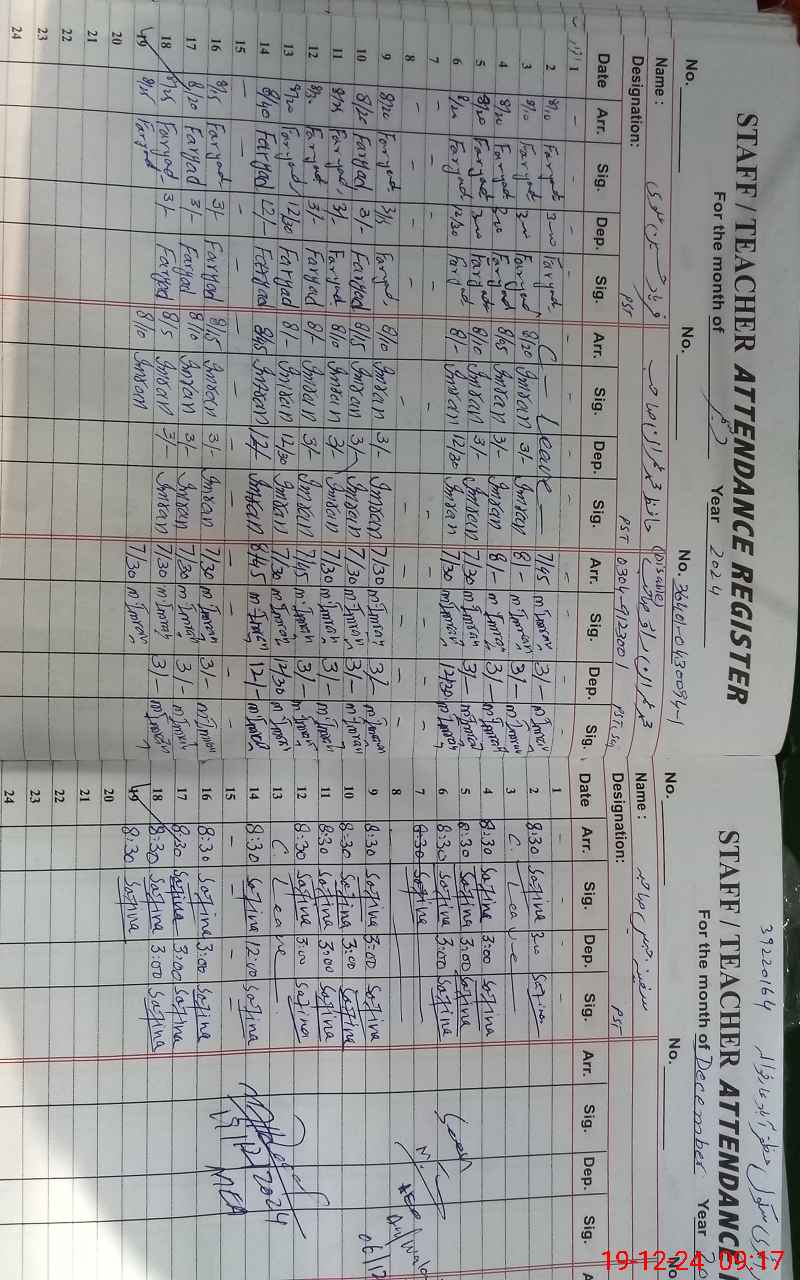 STAFF / TEACHER ATTENDANCE REGISTER
For the month of Year 2024
No. No. No. 36401-0430094-1
Name :
(Disable)
Designation: PST PST 0304-9123001 PST.
Date Arr. Sig. Dep. Sig. Arr. Sig. Dep. Sig. Arr. Sig. Dep. Sig.
1 - - - - - - - -
2 8/10 Faryad 3-00 Faryad C - Leave - 7/45 m Imran 3/- m Imran
3 8/10 Faryad 3-00 Faryad 8/20 Imran 3/- Imran 8/- m Imran 3/- m Imran
4 8/20 Faryad 3-00 Faryad 8/45 Imran 3/- Imran 8/- m Imran 3/- m Imran
5 8/20 Faryad 3-00 Faryad 8/10 Imran 3/- Imran 7/30 m Imran 3/- m Imran
6 8/20 Faryad 12/30 Faryad 8/- Imran 12/30 Imran 7/30 m Imran 12/30 m Imran
7 - - - - - - - -
8 - - - - - - - -
9 8/20 Faryad 3/15 Faryad 8/10 Imran 3/- Imran 7/30 m Imran 3/- m Imran
10 8/20 Faryad 3/- Faryad 8/15 Imran 3/- Imran 7/30 m Imran 3/- m Imran
11 8/25 Faryad 3/- Faryad 8/10 Imran 3/- Imran 7/30 m Imran 3/- m Imran
12 Faryad 3/- Faryad 8/- Imran 3/- Imran 7/45 m Imran 3/- m Imran
13 8/20 Faryad 12/30 Faryad 8/- Imran 12/30 Imran 7/30 m Imran 12/30 m Imran
14 8/40 Faryad 12/- Faryad 8/45 Imran 12/- Imran 8/45 m Imran 12/- m Imran
15 - - - - - - - -
16 8/15 Faryad 3/- Faryad 8/15 Imran 3/- Imran 7/30 m Imran 3/- m Imran
17 8/20 Faryad 3/- Faryad 8/10 Imran 3/- Imran 7/30 m Imran 3/- m Imran
18 8/25 Faryad 3/- Faryad 8/5 Imran 3/- Imran 7/30 m Imran 3/- m Imran
19 8/25 Faryad 8/10 Imran 7/30 m Imran
20
21
22
23
24
39220164
STAFF / TEACHER ATTENDANCE
For the month of December Year
No. No. No
Name :
Designation: PST
Date Arr. Sig. Dep. Sig. Arr. Sig. Dep. Sig.
1 - - - -
2 8:30 Safina 3:00 Safina
3 C. Leave
4 8:30 Safina 3:00 Safina
5 8:30 Safina 3:00 Safina
6 8:30 Safina 3:00 Safina
7 8:30 Safina
8
9 8:30 Safina 3:00 Safina
10 8:30 Safina 3:00 Safina
11 8:30 Safina 3:00 Safina
12 8:30 Safina 3:00 Safina
13 C. Leave
14 8:30 Safina 12:00 Safina
15 - - - -
16 8:30 Safina 3:00 Safina
17 8:30 Safina 3:00 Safina
18 8:30 Safina 3:00 Safina
19 8:30 Safina
20
21
22
23
24
06/12
12/2024
MEA
19-12-24 09:17